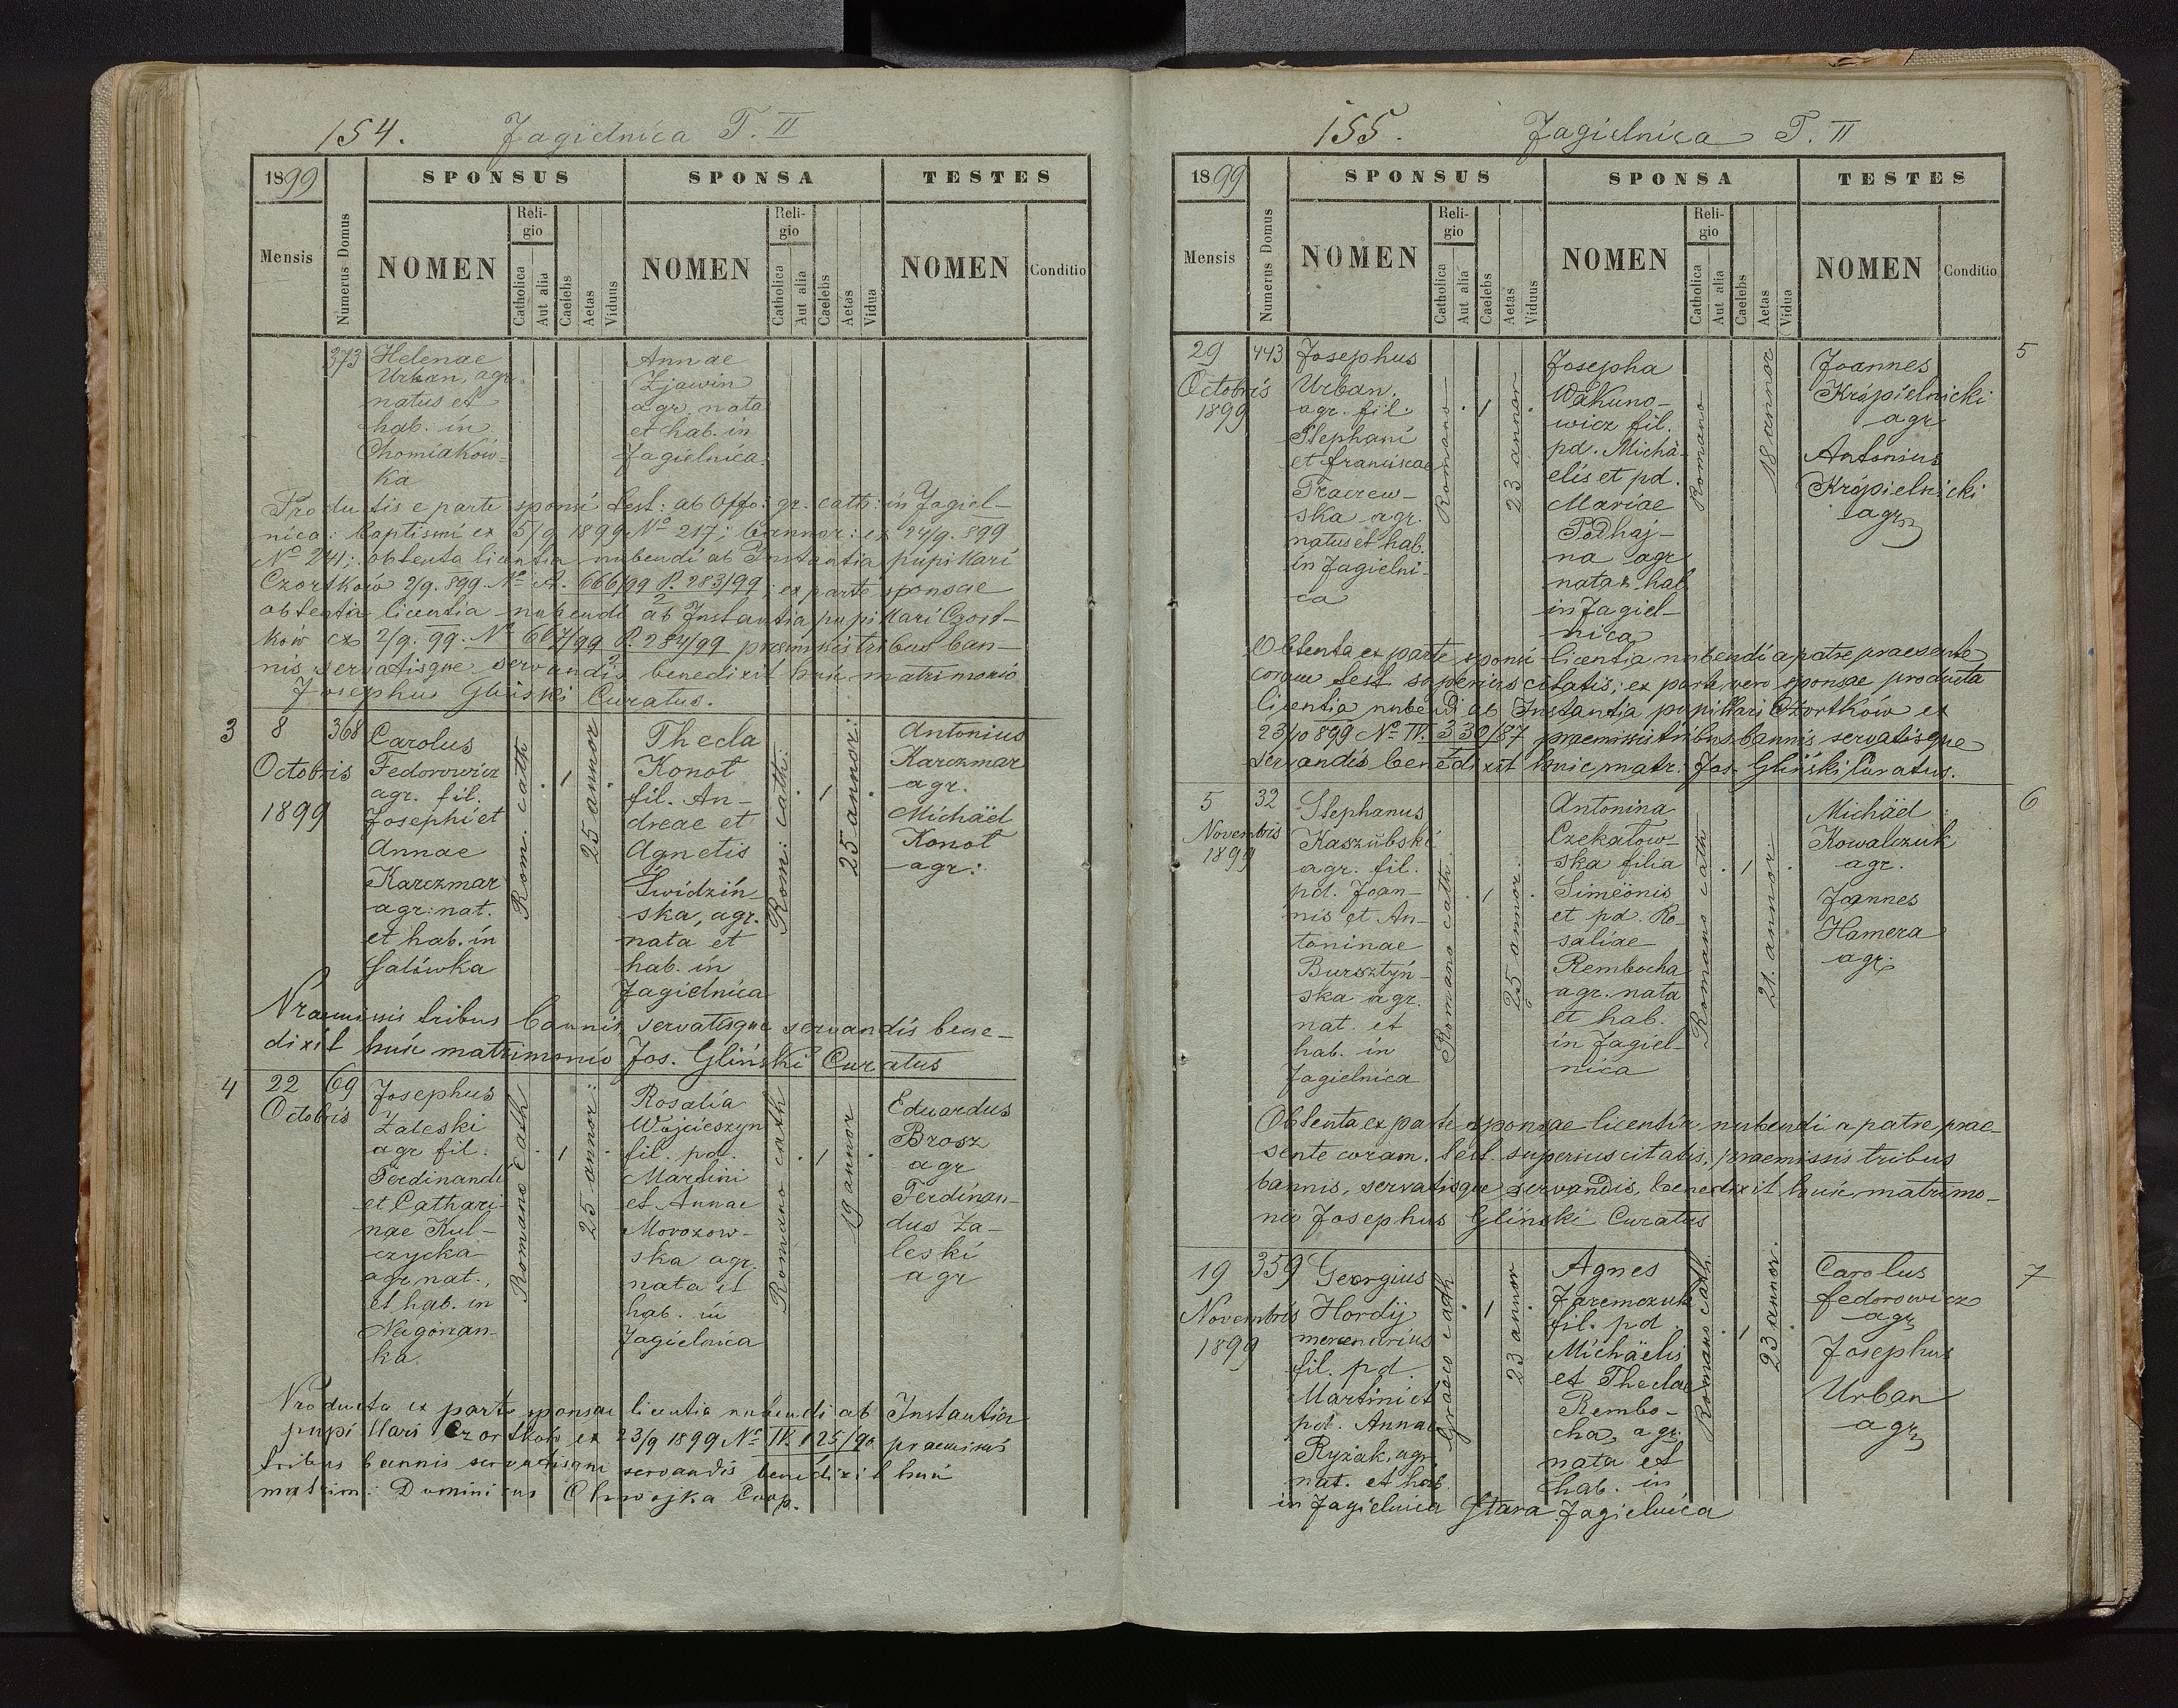 154. Jagielnica T. II
1899 SPONSUS SPONSA TESTES
Mensis Numerus Domus NOMEN Religio Catholica Aut alia Caelebs Aetas Viduus NOMEN Religio Catholica Aut alia Caelebs Aetas Vidua NOMEN Conditio
373 Helenae
Urban, agr.
natus et
hab. in
Chomiaków-
ka
Annae
Zjawin
agr. nata
et hab. in
Jagielnica.
Productis e parte sponsi test: ab Offo: gr. cath: in Jagiel-
nica: baptismi ex 5/9 1899 No 217; bannor: ex 24/9. 899
No 241; obtenta licentia nubendi ab Instantia pupillari
Czortków 2/9. 899. No A. 666/99 P. 283/99; ex parte sponsae
2
obtentia licentia nubendi ab Instantia pupillari Czort-
ków ex 2/9. 99. No 667/99 P. 284/99 praemissis tribus ban-
2
nis servatisque servandis benedixit huic matrimonio
Josephus Gliński Curatus.
3
8
Octobris
1899
368
Carolus
Fedorowicz
agr. fil.
Josephi et
Annae
Karczmar
agr: nat.
et hab. in
Salówka
Rom. cath
1
25 annor
Thecla
Konot
fil. An-
dreae et
Agnetis
Swidziń-
ska, agr.
nata et
hab. in
Jagielnica
Rom: cath:
1
25 annor:
Antonius
Karczmar
agr.
Michäel
Konot
agr:
Praemissis tribus bannis servatisque servandis bene-
dixit huic matrimonio Jos. Gliński Curatus
4
22
Octobris
69
Josephus
Zaleski
agr fil.
Ferdinandi
et Cathari-
nae Kul-
czycka
agr nat.,
et hab. in
Nagórzan-
ka.
Romano cath
1
25 annor:
Rosalia
Wojcieszyn
fil. pd.
Martini
et Annae
Morozow-
ska agr.
nata et
hab. in
Jagielnica
Romano cath
1
19 annor
Eduardus
Brosz
agr
Ferdinan-
dus Za-
leski
agr
Producta ex parte sponsae licentia nubendi ab Instantia
pupillari Czortków ex 23/9 1899 No IV. 125/90 praemissis
tribus bannis servatisque servandis benedixit huic
matrim: Dominicus Chwojka Coop.
155. Jagielnica T. II
1899 SPONSUS SPONSA TESTES
Mensis Numerus Domus NOMEN Religio Catholica Aut alia Caelebs Aetas Viduus NOMEN Religio Catholica Aut alia Caelebs Aetas Vidua NOMEN Conditio
5
29
Octobris
1899
443
Josephus
Urban,
agr. fil.
Stephani
et Franciscae
Traczew-
ska agr.
natus et hab.
in Jagielni-
ca
Romano
1
23 annor
Josepha
Wakuno-
wicz fil.
pd. Micha-
elis et pd.
Mariae
Podhaj-
na agr
nata & hab
in Jagiel-
nica
Romano
18 annor
Joannes
Krópielnicki
agr
Antonius
Krópielnicki
agr
Obtenta ex parte sponsi licentia nubendi a patre praesente
coram test superius citatis; ex parte vero sponsae producta
licentia nubendi ab Instantia pupillari Czortków ex
23/10 899 No IV. 330/87 praemissis tribus bannis servatisque
servandis benedixit huic matr: Jos. Gliński Curatus.
6
5
Novembris
1899
32
Stephanus
Kaszubski
agr. fil.
pd. Joan-
nis et An-
toninae
Bursztyń-
ska agr.
nat. et
hab. in
Jagielnica
Romano cath
1
25 annor:
Antonina
Czekałow-
ska filia
Simëonis
et pd. Ro-
saliae
Rembocha
agr. nata
et hab.
in Jagiel-
nica
Romano cath
1
21. annor:
Michäel
Kowalczuk
agr.
Joannes
Hamera
agr.
Obtenta ex parte sponsae licentia nubendi a patre prae-
sente coram test. superius citatis, praemissis tribus
bannis, servatisque servandis, benedixit huic matrimo-
nio Josephus Gliński Curatus
7
19
Novembris
1899
359
Georgius
Hordij
mercenarius
fil. pd.
Martini et
pd. Annae
Ryżak, agr.
nat. et hab.
in Jagielnica Stara
Graeco cath
1
23 annor
Agnes
Jaremczuk
fil. pd.
Michäelis
et Theclae
Rembo-
cha, agr.
nata et
hab. in
Jagielnica
Romano cath
1
23 annor.
Carolus
Fedorowicz
agr
Josephus
Urban
agr